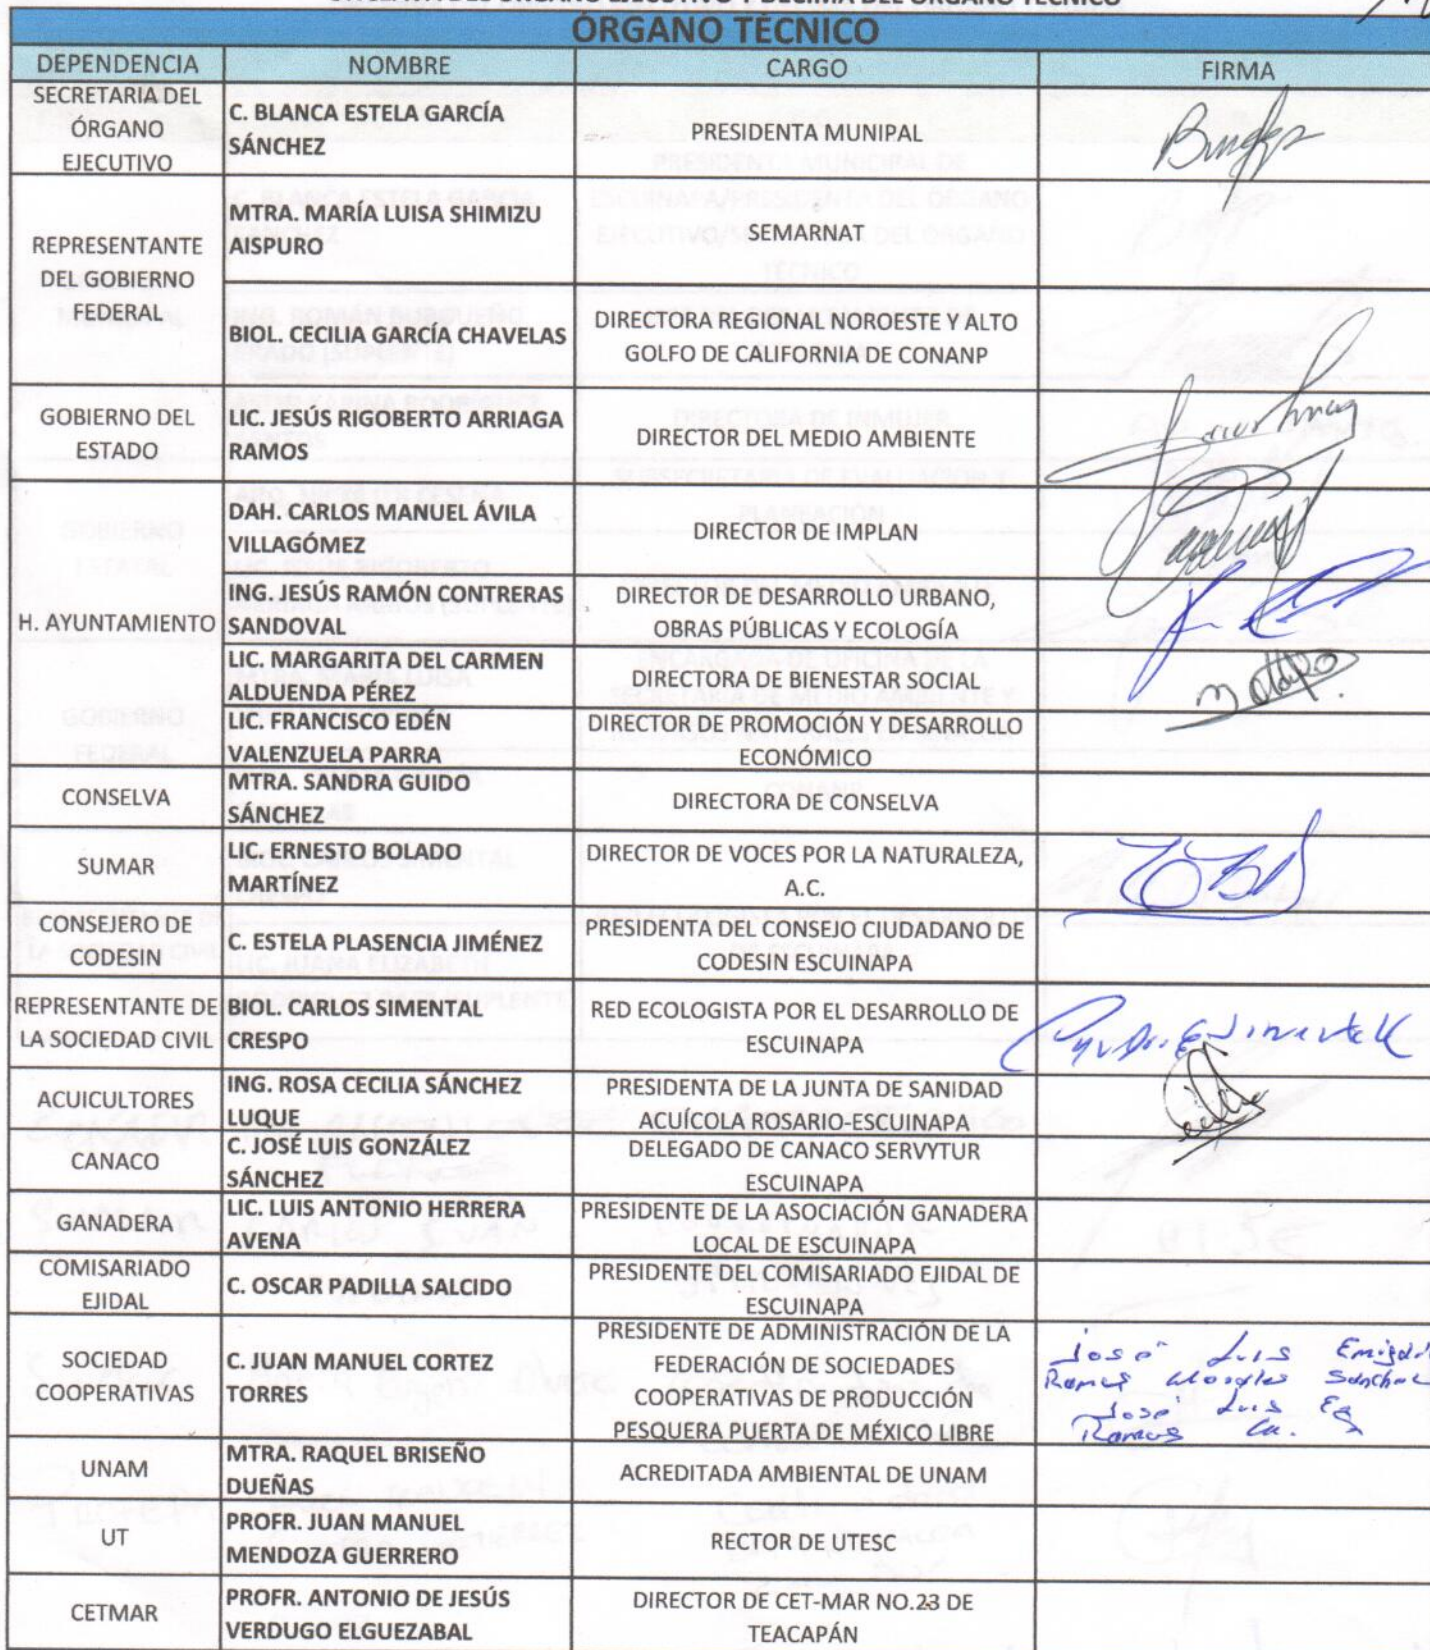 ÓRGANO TÉCNICO
DEPENDENCIA NOMBRE CARGO FIRMA
SECRETARIA DEL
ÓRGANO
EJECUTIVO
C. BLANCA ESTELA GARCÍA
SÁNCHEZ
PRESIDENTA MUNIPAL
REPRESENTANTE
DEL GOBIERNO
FEDERAL
MTRA. MARÍA LUISA SHIMIZU
AISPURO
SEMARNAT
BIOL. CECILIA GARCÍA CHAVELAS
DIRECTORA REGIONAL NOROESTE Y ALTO
GOLFO DE CALIFORNIA DE CONANP
GOBIERNO DEL
ESTADO
LIC. JESÚS RIGOBERTO ARRIAGA
RAMOS
DIRECTOR DEL MEDIO AMBIENTE
H. AYUNTAMIENTO
DAH. CARLOS MANUEL ÁVILA
VILLAGÓMEZ
DIRECTOR DE IMPLAN
ING. JESÚS RAMÓN CONTRERAS
SANDOVAL
DIRECTOR DE DESARROLLO URBANO,
OBRAS PÚBLICAS Y ECOLOGÍA
LIC. MARGARITA DEL CARMEN
ALDUENDA PÉREZ
DIRECTORA DE BIENESTAR SOCIAL
LIC. FRANCISCO EDÉN
VALENZUELA PARRA
DIRECTOR DE PROMOCIÓN Y DESARROLLO
ECONÓMICO
CONSELVA
MTRA. SANDRA GUIDO
SÁNCHEZ
DIRECTORA DE CONSELVA
SUMAR
LIC. ERNESTO BOLADO
MARTÍNEZ
DIRECTOR DE VOCES POR LA NATURALEZA,
A.C.
CONSEJERO DE
CODESIN
C. ESTELA PLASENCIA JIMÉNEZ
PRESIDENTA DEL CONSEJO CIUDADANO DE
CODESIN ESCUINAPA
REPRESENTANTE DE
LA SOCIEDAD CIVIL
BIOL. CARLOS SIMENTAL
CRESPO
RED ECOLOGISTA POR EL DESARROLLO DE
ESCUINAPA
ACUICULTORES
ING. ROSA CECILIA SÁNCHEZ
LUQUE
PRESIDENTA DE LA JUNTA DE SANIDAD
ACUÍCOLA ROSARIO-ESCUINAPA
CANACO
C. JOSÉ LUIS GONZÁLEZ
SÁNCHEZ
DELEGADO DE CANACO SERVYTUR
ESCUINAPA
GANADERA
LIC. LUIS ANTONIO HERRERA
AVENA
PRESIDENTE DE LA ASOCIACIÓN GANADERA
LOCAL DE ESCUINAPA
COMISARIADO
EJIDAL
C. OSCAR PADILLA SALCIDO
PRESIDENTE DEL COMISARIADO EJIDAL DE
ESCUINAPA
SOCIEDAD
COOPERATIVAS
C. JUAN MANUEL CORTEZ
TORRES
PRESIDENTE DE ADMINISTRACIÓN DE LA
FEDERACIÓN DE SOCIEDADES
COOPERATIVAS DE PRODUCCIÓN
PESQUERA PUERTA DE MÉXICO LIBRE
José Luis
Ramos Morales Sanchez
José Luis
Ramos
UNAM
MTRA. RAQUEL BRISEÑO
DUEÑAS
ACREDITADA AMBIENTAL DE UNAM
UT
PROFR. JUAN MANUEL
MENDOZA GUERRERO
RECTOR DE UTESC
CETMAR
PROFR. ANTONIO DE JESÚS
VERDUGO ELGUEZABAL
DIRECTOR DE CET-MAR NO.23 DE
TEACAPÁN